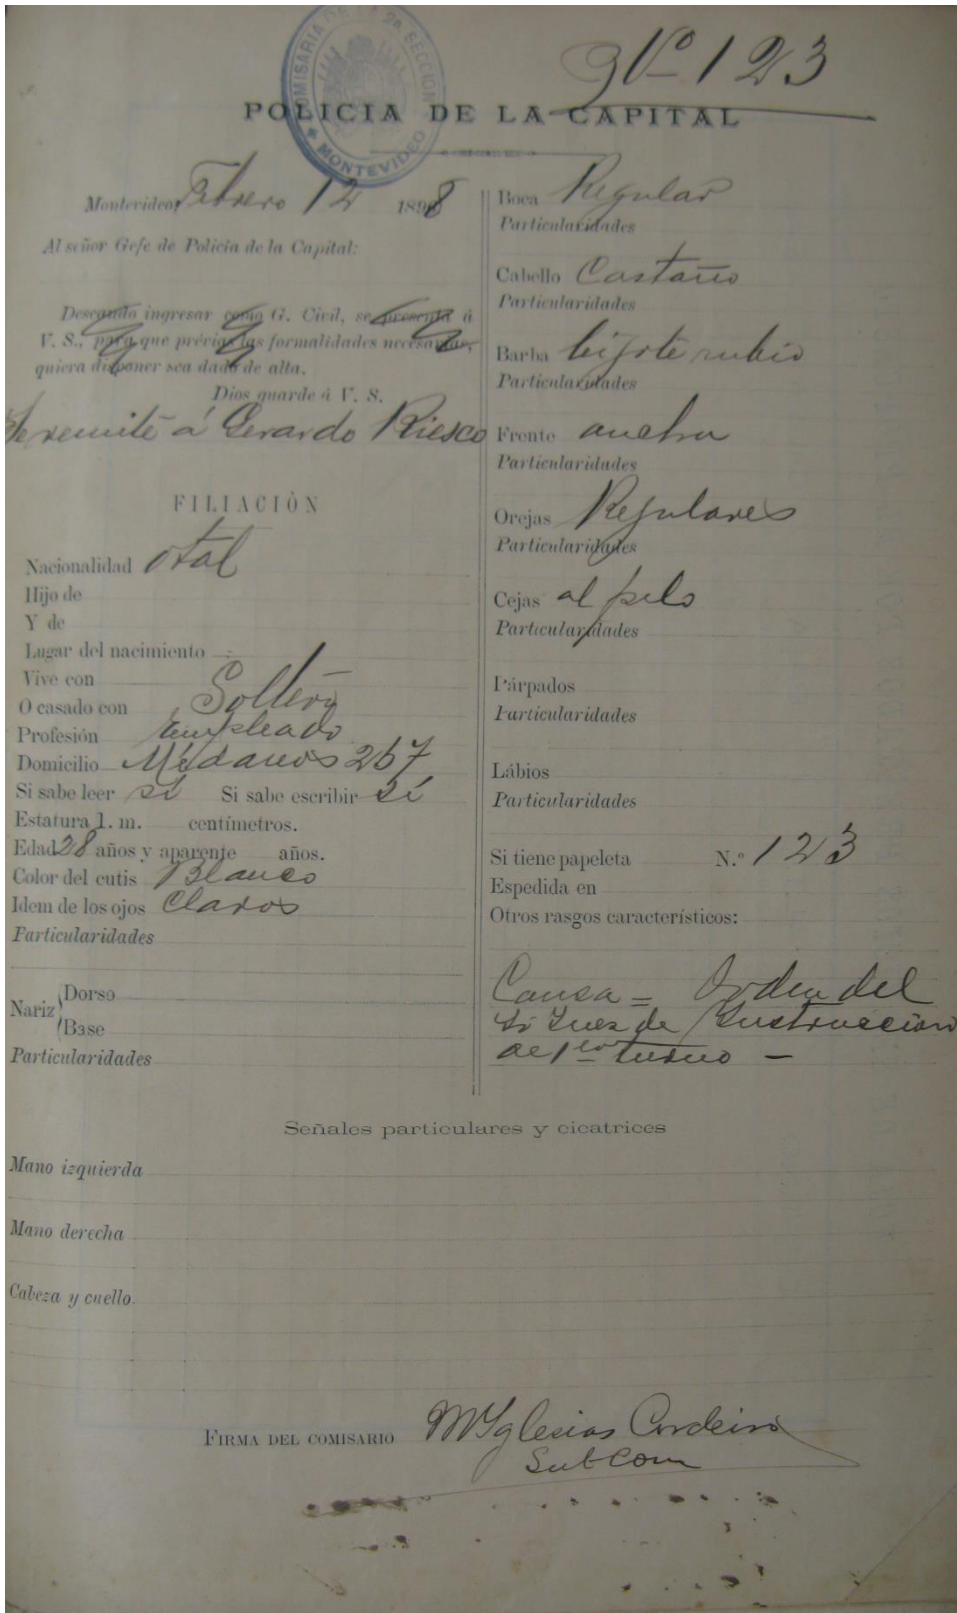 Nº 123
COMISARIA DE LA 2ª SECCION
MONTEVIDEO
POLICIA DE LA CAPITAL
Montevideo, Febrero 12 1898
Al señor Gefe de Policía de la Capital:
Deseando ingresar como G. Civil, se presenta á
V. S., para que prévias las formalidades necesarias,
quiera disponer sea dado de alta.
Dios guarde á V. S.
Se remite á Gerardo Riesco
FILIACIÓN
Nacionalidad Otal
Hijo de
Y de
Lugar del nacimiento
Vive con
O casado con Soltero
Profesión Empleado
Domicilio Médanos 267
Si sabe leer sí Si sabe escribir Sí
Estatura 1. m. centímetros.
Edad 28 años y aparente años.
Color del cutis Blanco
Idem de los ojos Claros
Particularidades
Nariz
Dorso
Base
Particularidades
Boca Regular
Particularidades
Cabello Castaño
Particularidades
Barba bigote rubio
Particularidades
Frente ancha
Particularidades
Orejas Regulares
Particularidades
Cejas al pelo
Particularidades
Párpados
Particularidades
Lábios
Particularidades
Si tiene papeleta N.º 123
Espedida en
Otros rasgos característicos:
Causa = Orden del
Sr Juez de Instruccion
de 1er turno –
Señales particulares y cicatrices
Mano izquierda
Mano derecha
Cabeza y cuello.
FIRMA DEL COMISARIO M Yglesias Cordeiro
SubCom